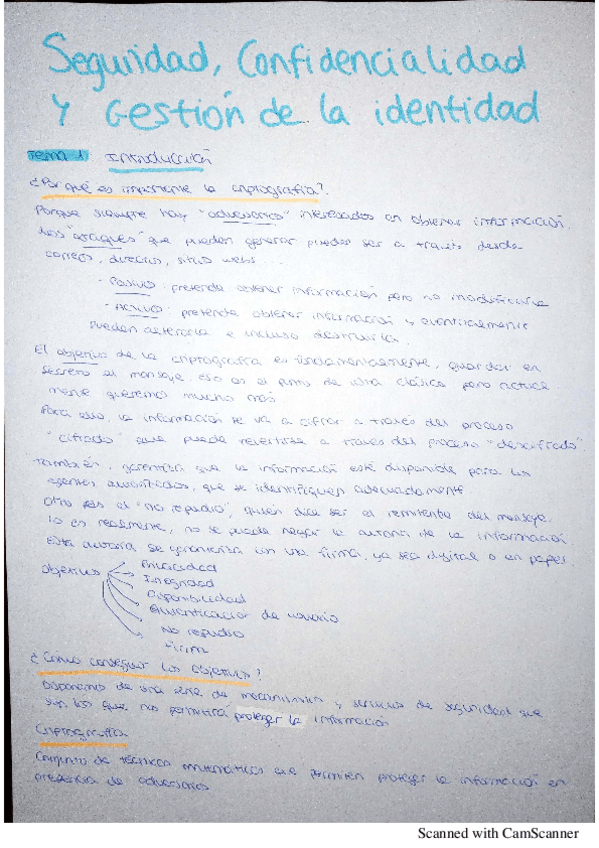 Seguridad, Confidencialidad
Y Gestión de la identidad
Tema 1 Introducción
¿Por qué es importante la criptografía?
Porque siempre hay "adversarios" interesados en obtener información.
Los "ataques" que pueden generar pueden ser a través desde
correos, discos, sitios webs...
- Pasivo: pretende obtener información pero no modificarla
- Activo: pretende obtener información y eventualmente
pueden alterarla e incluso destruirla.
El objetivo de la criptografía es fundamentalmente, guardar en
secreto el mensaje, eso es el punto de vista clásico pero actual
mente queremos mucho más
Para ello, la información se va a cifrar a través del proceso
"cifrado" que puede revertirse a través del proceso "descifrado".
También, garantiza que la información esté disponible para los
agentes autorizados, que se identifiquen adecuadamente.
Otro es el "no repudio", quien dice ser el remitente del mensaje,
lo es realmente, no se puede negar la autoría de la información.
Esta autoría se garantiza con una firma, ya sea digital o en papel
Objetivos
Privacidad
Integridad
Disponibilidad
Autenticación de usuario
No repudio
Firma
¿Cómo conseguir los objetivos?
Disponemos de una serie de mecanismos y servicios de seguridad que
son los que nos permitirá proteger la información
Criptografía
Conjunto de técnicas matemáticas que permiten proteger la información en
presencia de adversarios
Scanned with CamScanner